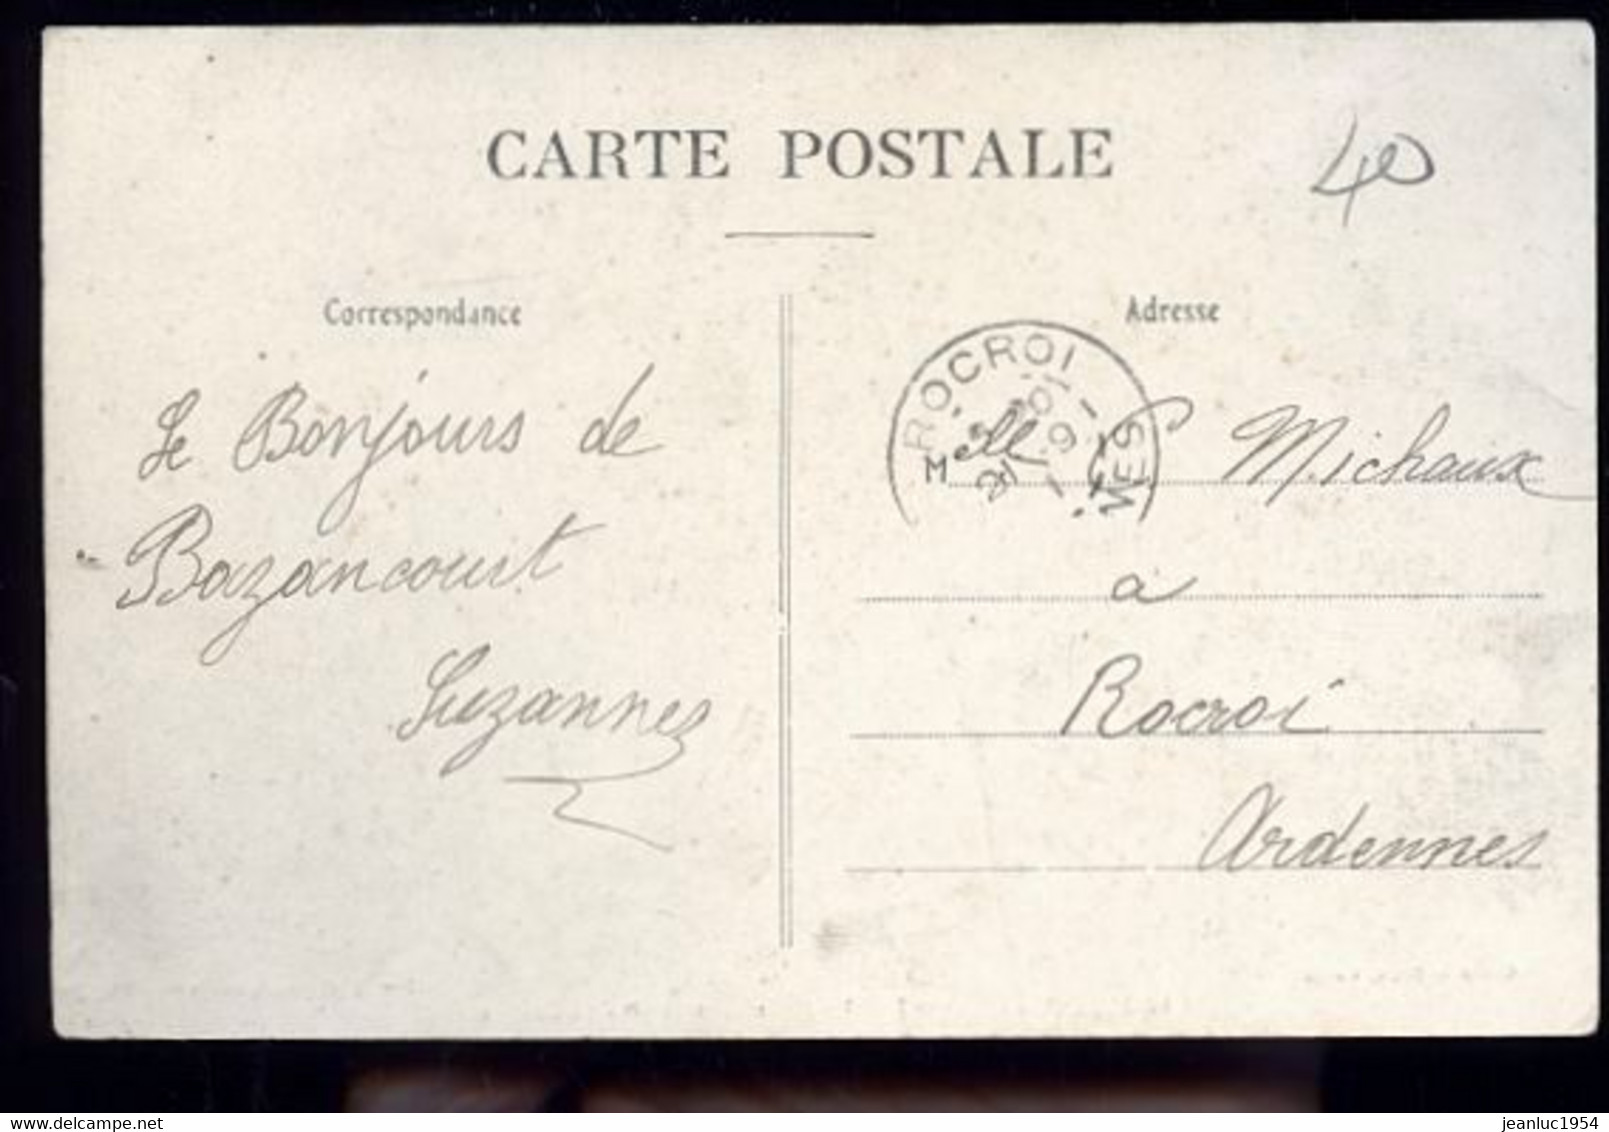 CARTE POSTALE
40
Correspondance
Le Bonjours de
Bazancourt
Suzannes
Adresse
ROCROI
Melle Michaux
à
Rocroi
Ardennes
jeanluc1954